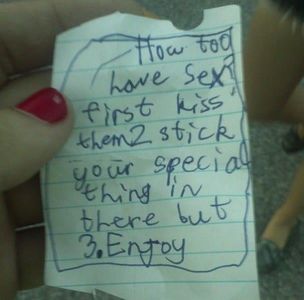 How too
have Sex?
first kiss
them2 stick
your special
thing in
there but
3.Enjoy